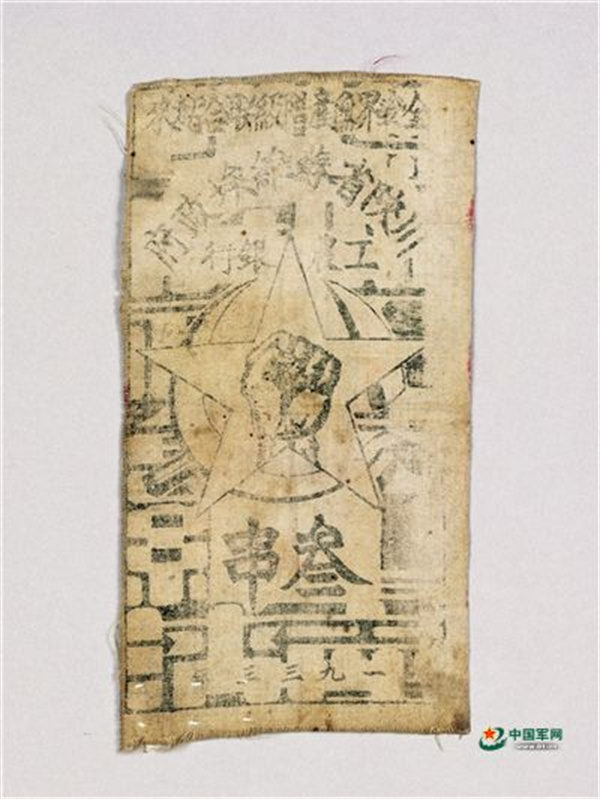 全世界無產階級聯合起來
川陝省蘇維埃政府
工農銀行
叁串
一九三三
中国军网
www.81.cn